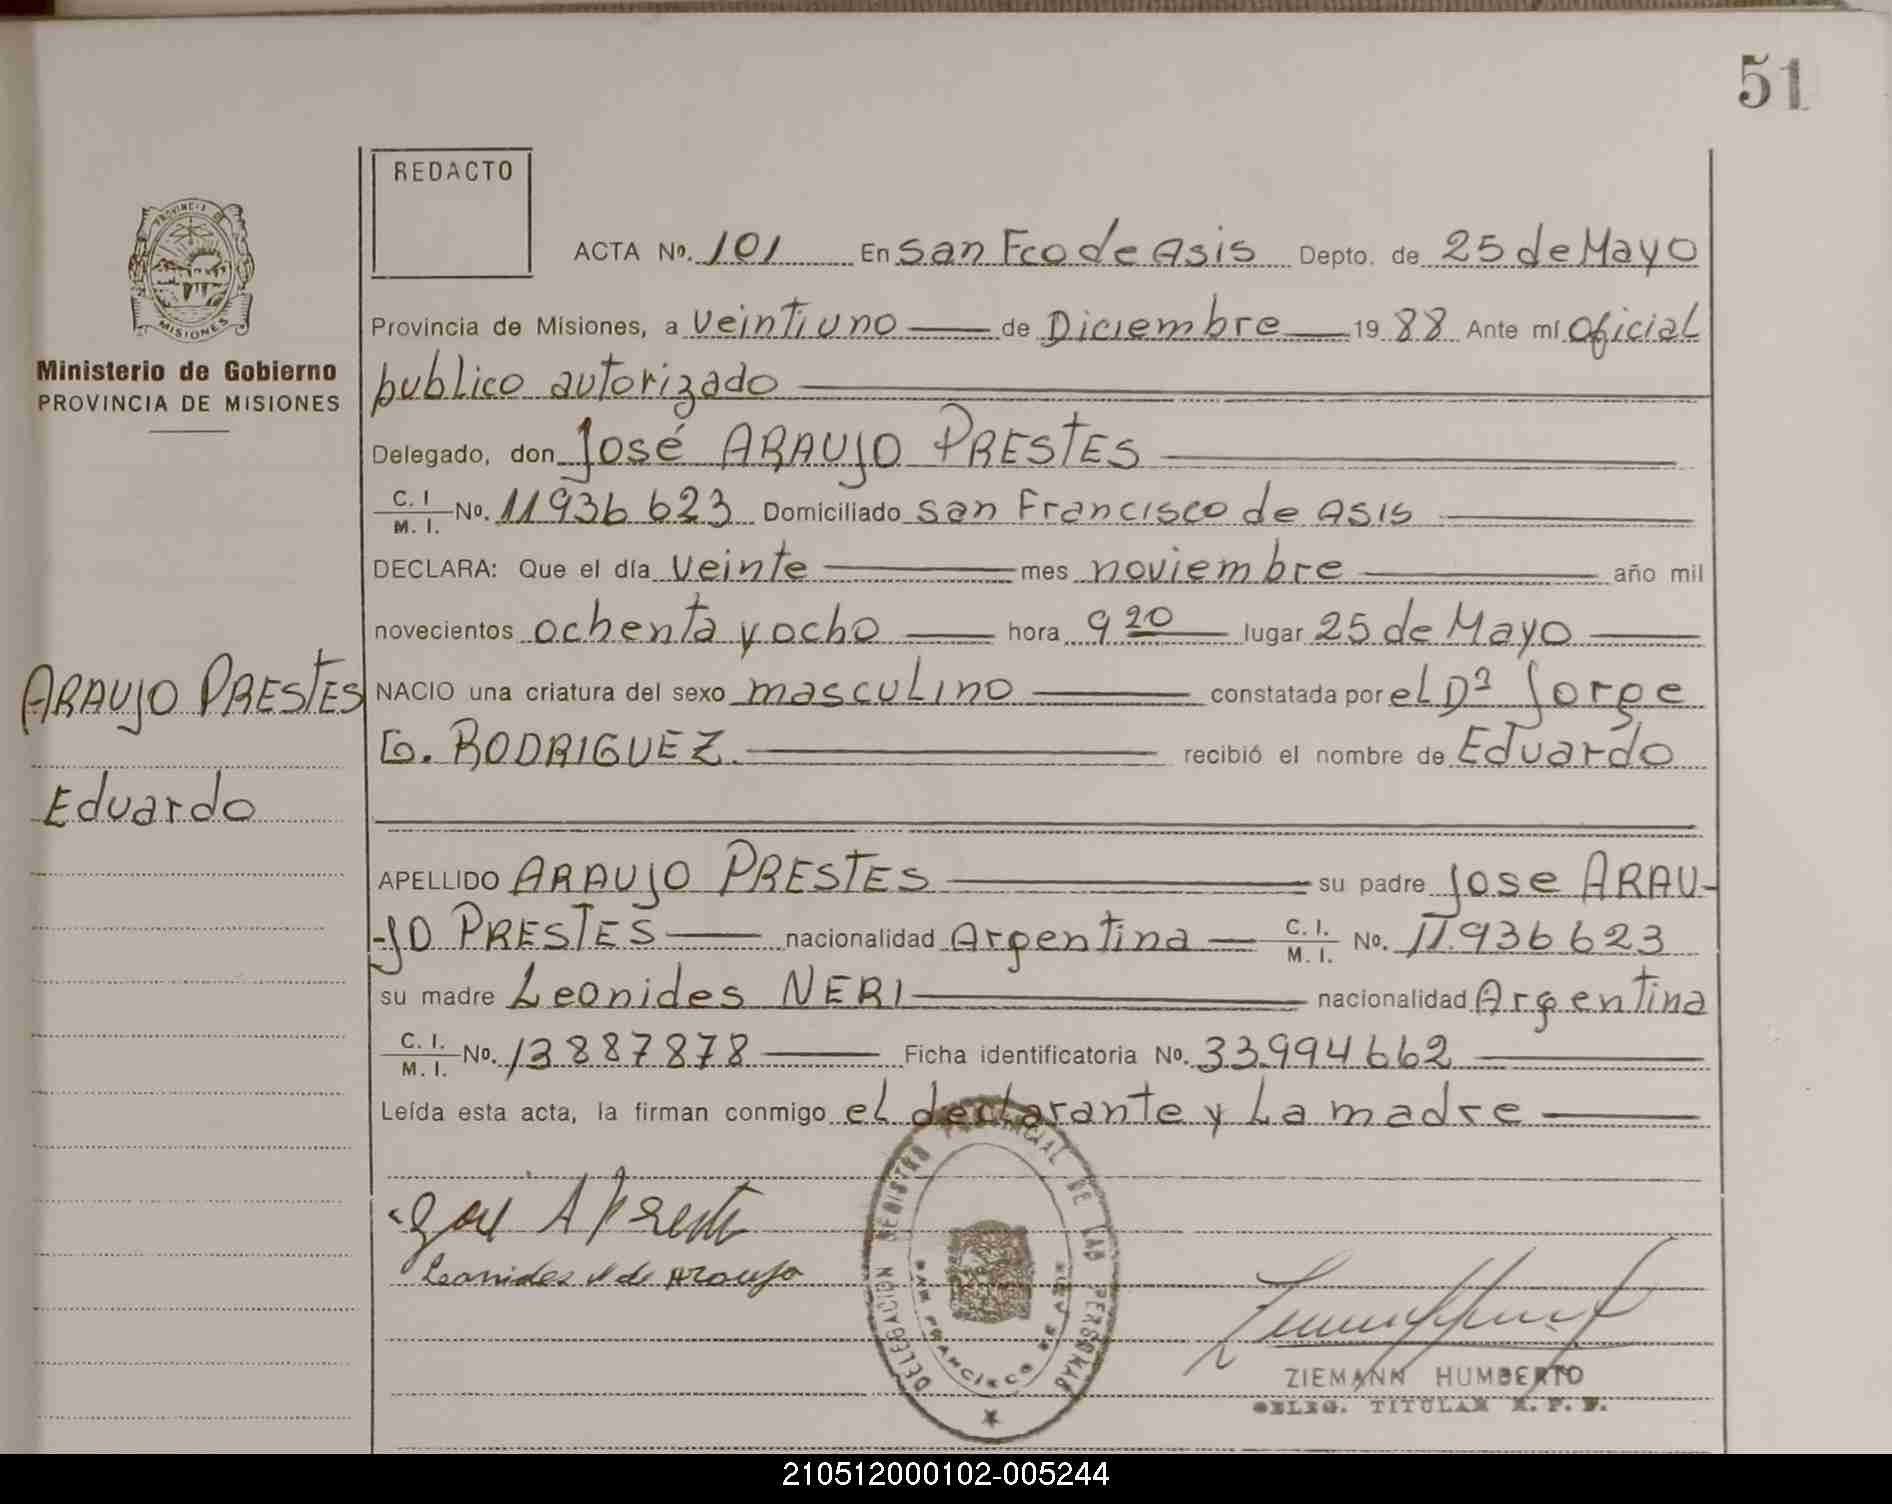 51
REDACTO
PROVINCIA DE
MISIONES
Ministerio de Gobierno
PROVINCIA DE MISIONES
ACTA Nº. 101 En San Fco de Asis Depto. de 25 de Mayo
Provincia de Misiones, a Veintiuno de Diciembre 1988 Ante mí oficial
publico autorizado
Delegado, don José ARAUJO PRESTES
C. I. M. I. Nº. 11936623 Domiciliado San Francisco de Asis
DECLARA: Que el día Veinte mes noviembre año mil
novecientos ochenta y ocho hora 9 20 lugar 25 de Mayo
ARAUJO PRESTES
Eduardo
NACIO una criatura del sexo masculino constatada por el Dr Jorge
G. RODRIGUEZ. recibió el nombre de Eduardo
APELLIDO ARAUJO PRESTES su padre Jose ARAU-
-JO PRESTES nacionalidad Argentina C. I. M. I. Nº. 11.936623
su madre Leonides NERI nacionalidad Argentina
C. I. M. I. Nº. 13887878 Ficha identificatoria Nº. 33.994662
Leída esta acta, la firman conmigo el declarante y La madre
Leonides N de Araujo
DELEGACION REGISTRO PROVINCIAL DE LAS PERSONAS
SAN FRANCISCO DE ASIS
ZIEMANN HUMBERTO
DELEG. TITULAR R. P. P.
210512000102-005244